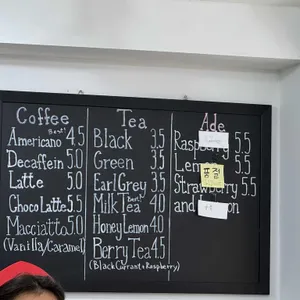 Coffee
Best!
Americano 4.5
Decaffein 5.0
Latte 5.0
Choco Latte 5.5
Macciatto 5.0
(Vanilla/Caramel)
Tea
Black 3.5
Green 3.5
Earl Grey 3.5
Best!
Milk Tea 4.0
Honey Lemon 4.0
Berry Tea 4.5
(Black Currant & Raspberry)
Ade
Raspberry 5.5
Lem 5.5
품절
Strawberry 5.5
and on